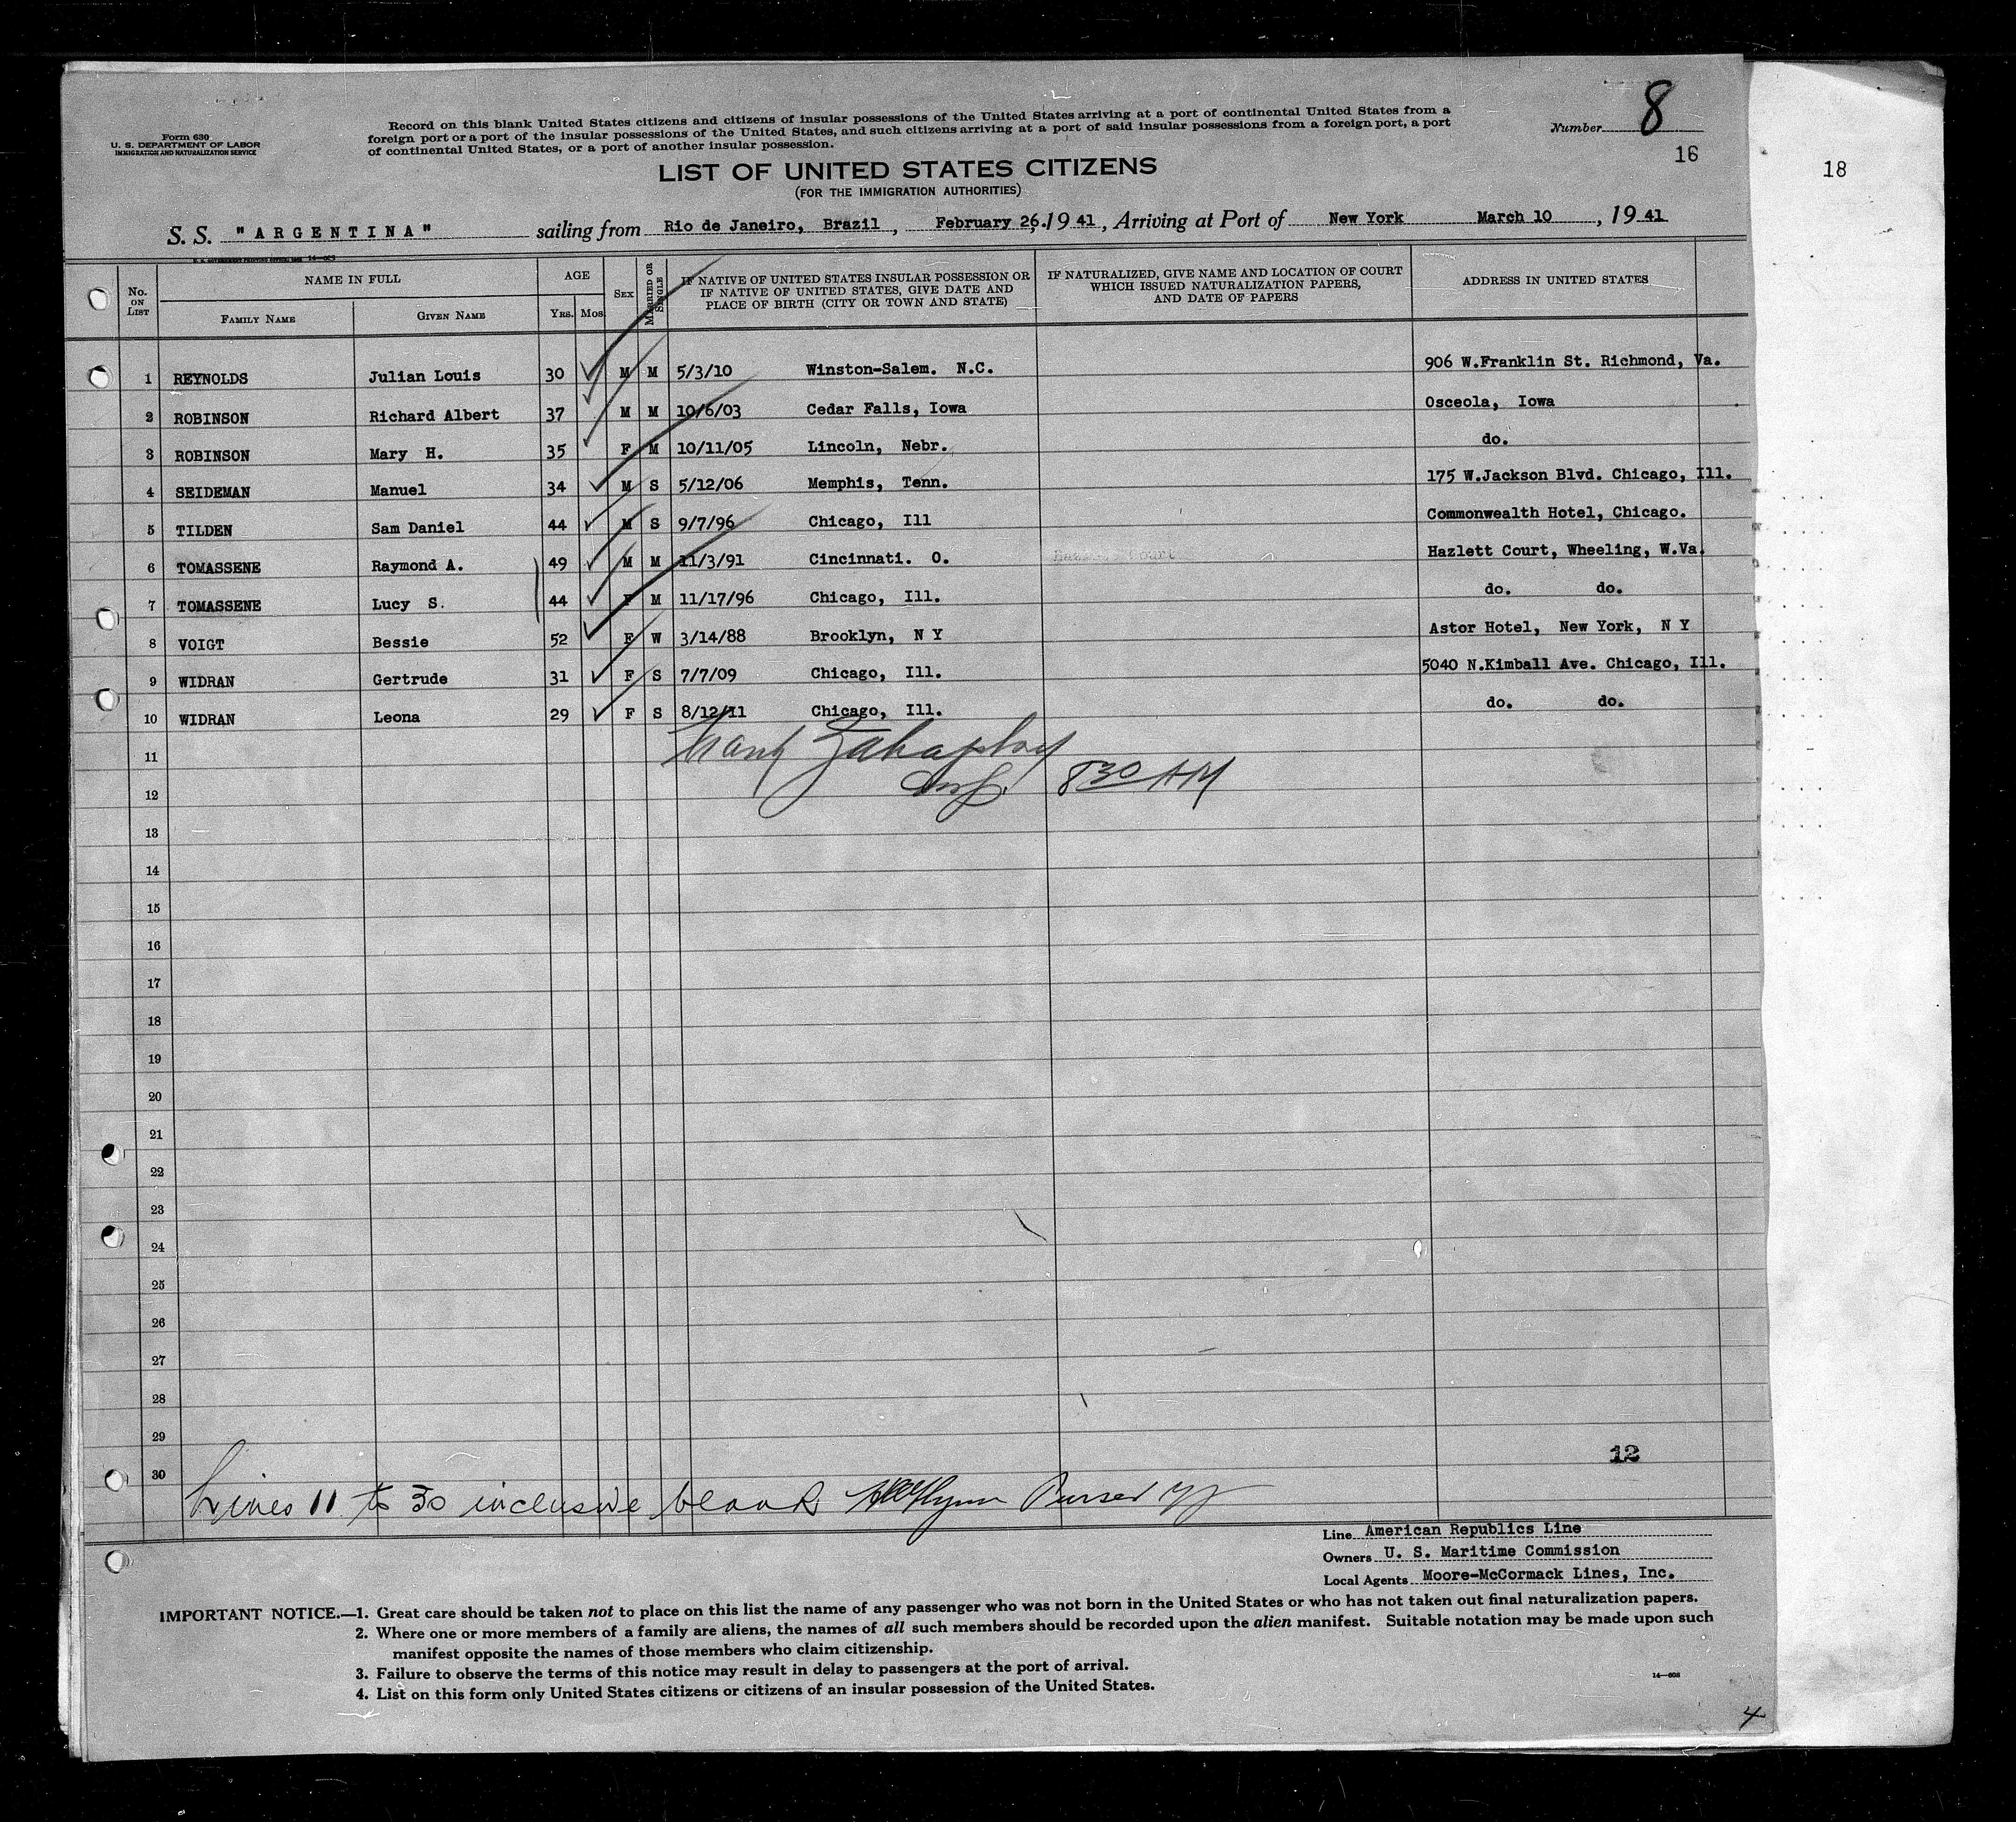 Form 630
U. S. DEPARTMENT OF LABOR
IMMIGRATION AND NATURALIZATION SERVICE
Record on this blank United States citizens and citizens of insular possessions of the United States arriving at a port of continental United States from a
foreign port or a port of the insular possessions of the United States, and such citizens arriving at a port of said insular possessions from a foreign port, a port
of continental United States, or a port of another insular possession.
Number 8
16
18
LIST OF UNITED STATES CITIZENS
(FOR THE IMMIGRATION AUTHORITIES)
S. S. "ARGENTINA" sailing from Rio de Janeiro, Brazil, February 26, 1941, Arriving at Port of New York March 10, 1941
No. ON LIST NAME IN FULL FAMILY NAME GIVEN NAME AGE YRS. MOS. SEX MARRIED OR SINGLE IF NATIVE OF UNITED STATES INSULAR POSSESSION OR IF NATIVE OF UNITED STATES, GIVE DATE AND PLACE OF BIRTH (CITY OR TOWN AND STATE) IF NATURALIZED, GIVE NAME AND LOCATION OF COURT WHICH ISSUED NATURALIZATION PAPERS, AND DATE OF PAPERS ADDRESS IN UNITED STATES
1 REYNOLDS Julian Louis 30 M M 5/3/10 Winston-Salem. N.C. 906 W.Franklin St. Richmond, Va.
2 ROBINSON Richard Albert 37 M M 10/6/03 Cedar Falls, Iowa Osceola, Iowa
3 ROBINSON Mary H. 35 F M 10/11/05 Lincoln, Nebr. do.
4 SEIDEMAN Manuel 34 M S 5/12/06 Memphis, Tenn. 175 W.Jackson Blvd. Chicago, Ill.
5 TILDEN Sam Daniel 44 M S 9/7/96 Chicago, Ill Commonwealth Hotel, Chicago.
6 TOMASSENE Raymond A. 49 M M 11/3/91 Cincinnati. O. Hazlett Court, Wheeling, W.Va.
7 TOMASSENE Lucy S. 44 F M 11/17/96 Chicago, Ill. do. do.
8 VOIGT Bessie 52 F W 3/14/88 Brooklyn, N Y Astor Hotel, New York, N Y
9 WIDRAN Gertrude 31 F S 7/7/09 Chicago, Ill. 5040 N.Kimball Ave. Chicago, Ill.
10 WIDRAN Leona 29 F S 8/12/11 Chicago, Ill. do. do.
11
12 830 AM
13
14
15
16
17
18
19
20
21
22
23
24
25
26
27
28
29
12
30
Lines 11 to 30 inclusive blank Purser
Line American Republics Line
Owners U. S. Maritime Commission
Local Agents Moore-McCormack Lines, Inc.
IMPORTANT NOTICE.—1. Great care should be taken not to place on this list the name of any passenger who was not born in the United States or who has not taken out final naturalization papers.
2. Where one or more members of a family are aliens, the names of all such members should be recorded upon the alien manifest. Suitable notation may be made upon such
manifest opposite the names of those members who claim citizenship.
3. Failure to observe the terms of this notice may result in delay to passengers at the port of arrival.
4. List on this form only United States citizens or citizens of an insular possession of the United States.
14—608
4